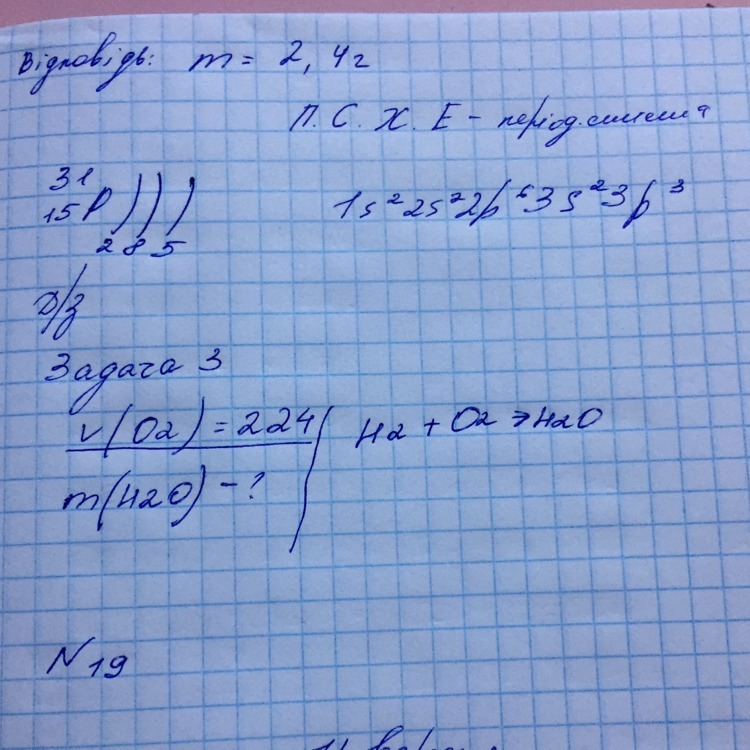 Відповідь: m = 2,4г
П. С. Х. Е - період. система
31
15 P ) ) ) 1s² 2s² 2p⁶ 3s² 3p³
2 8 5
Д/з
Задача 3
V(O2) = 224 H2 + O2 → H2O
m(H2O) - ?
N 19